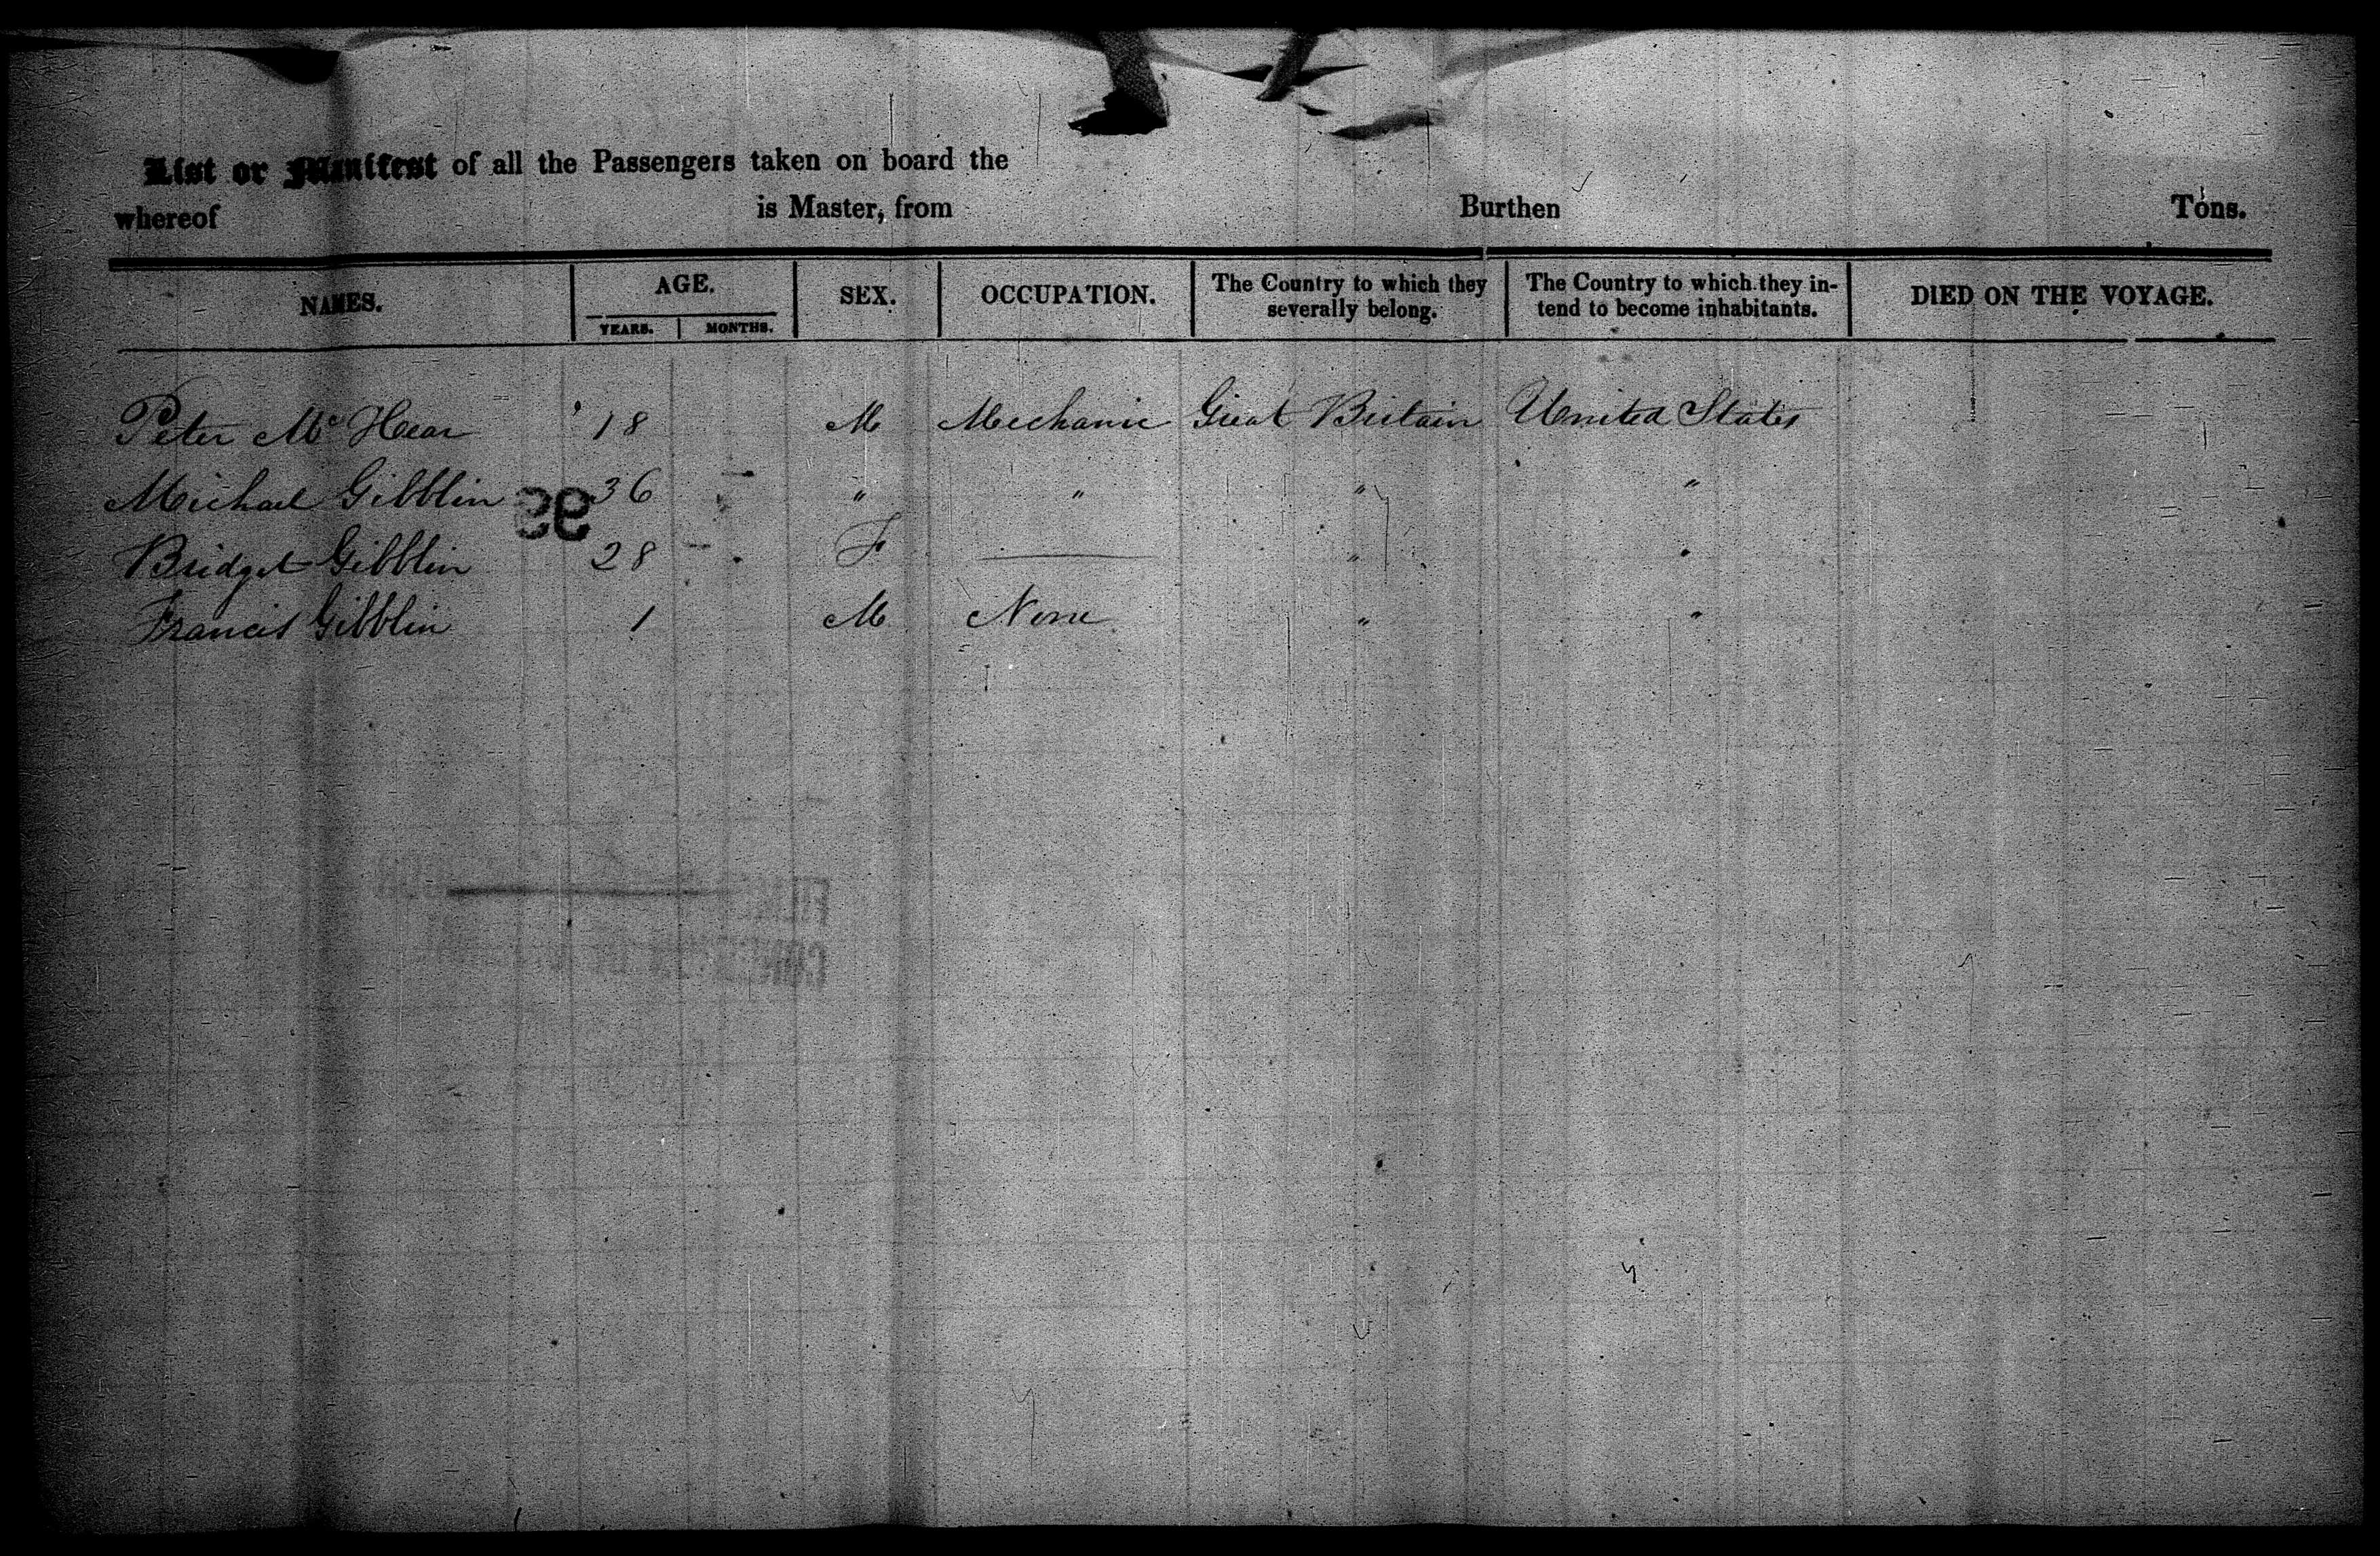 List or Manifest of all the Passengers taken on board the
whereof is Master, from Burthen Tons.
NAMES. AGE. SEX. OCCUPATION. The Country to which they severally belong. The Country to which they intend to become inhabitants. DIED ON THE VOYAGE.
YEARS. MONTHS.
Peter Mc Hear 18 M Mechanic Great Britain United States
Michael Gibblin 36 " " " "
Bridget Gibblin 28 F — " "
Francis Gibblin 1 M None " "